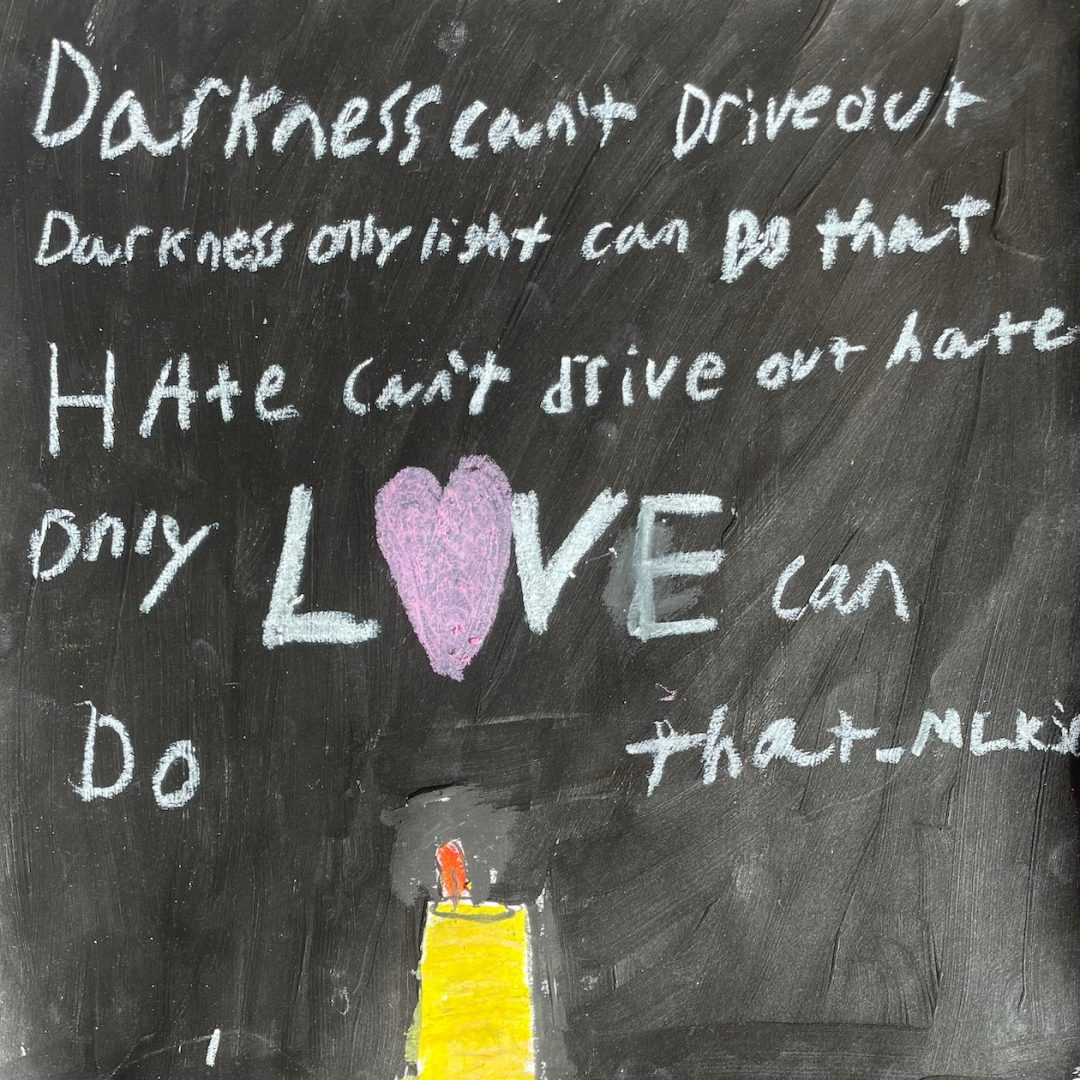 Darkness can't Drive out
Darkness only light can Do that
HAte can't drive out hate
only LOVE can
Do that - MLKi